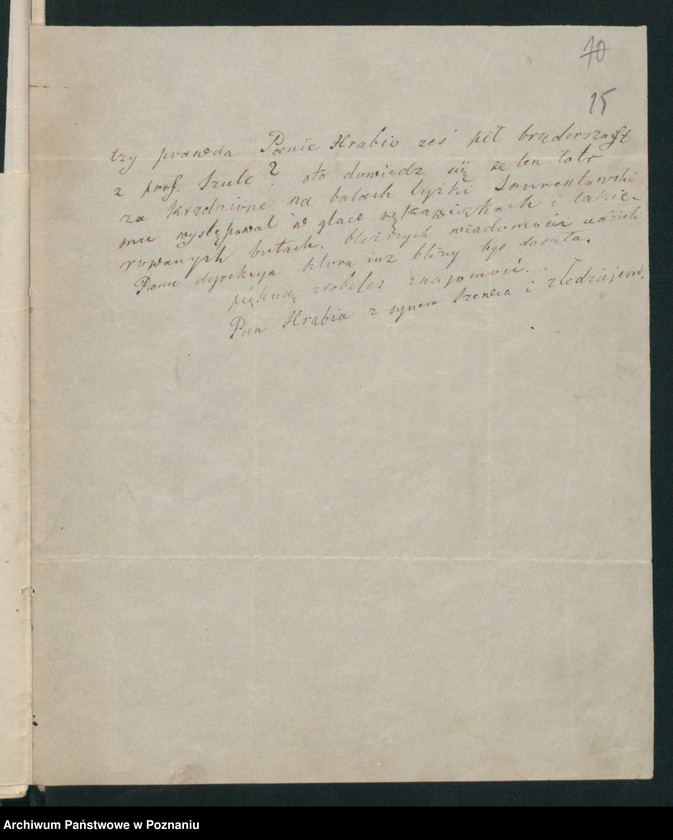 10
15
czy prawda Panie Hrabio żeś pił bruderszaft
z prof. Szulc? oto dowiedz się że ten łotr
za kradzione na balach łyżki
mu występował w glace rękawiczkach i lakie-
rowanych butach. bliższych wiadomości udzieli
Panu dyrekcya która już bliży tego doszła.
piękną zrobiłeś znajomość.
Pan Hrabia z synem szewca i złodziejem.
Archiwum Państwowe w Poznaniu